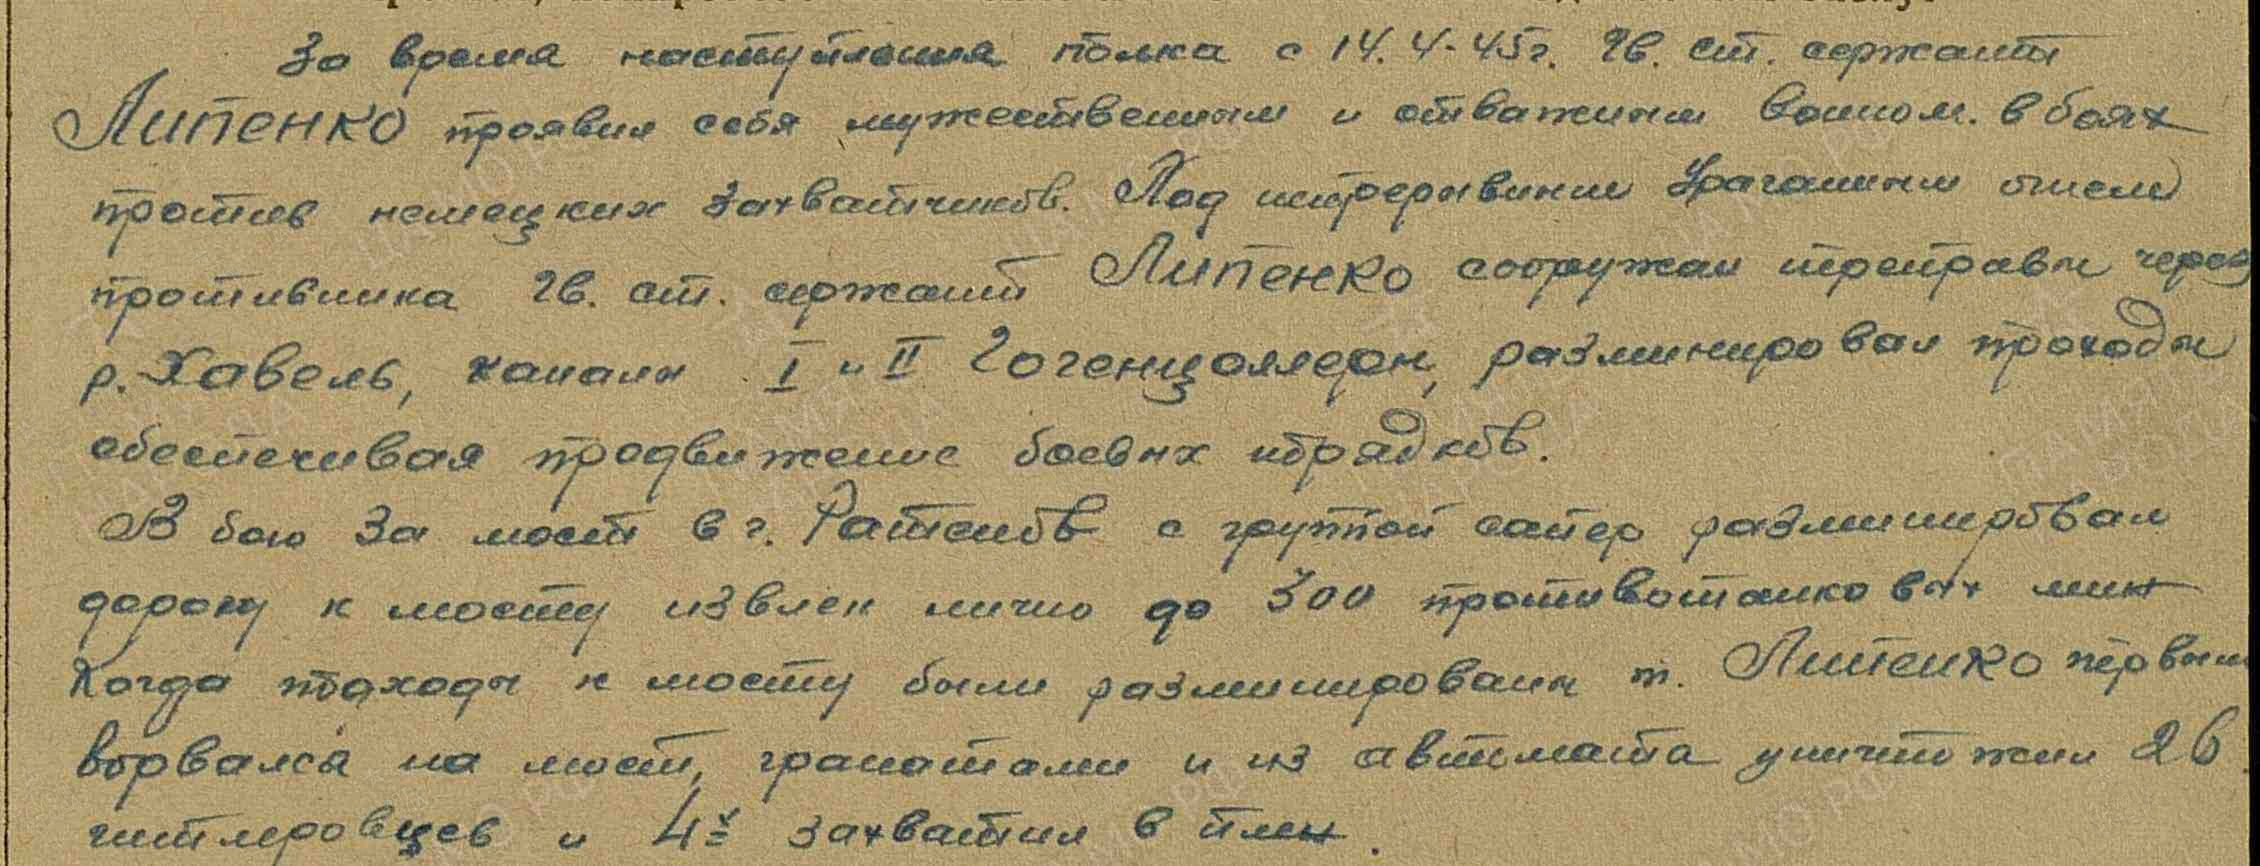 За время наступления полка с 14.4.45г. гв. ст. сержант
Липенко проявил себя мужественным и отважным воином. в боях
против немецких захватчиков. Под непрерывным ураганным огнем
противника гв. ст. сержант Липенко сооружал переправы через
р. Хавель, каналы I и II Гогенцоллерн, разминировал проходы
обеспечивая продвижение боевых порядков.
В бою за мост в г. Ратенов с группой сапер разминировал
дорогу к мосту извлек лично до 300 противотанковых мин
Когда подходы к мосту были разминированы т. Липенко первым
ворвался на мост, гранатами и из автомата уничтожил 26
гитлеровцев и 4х захватил в плен.